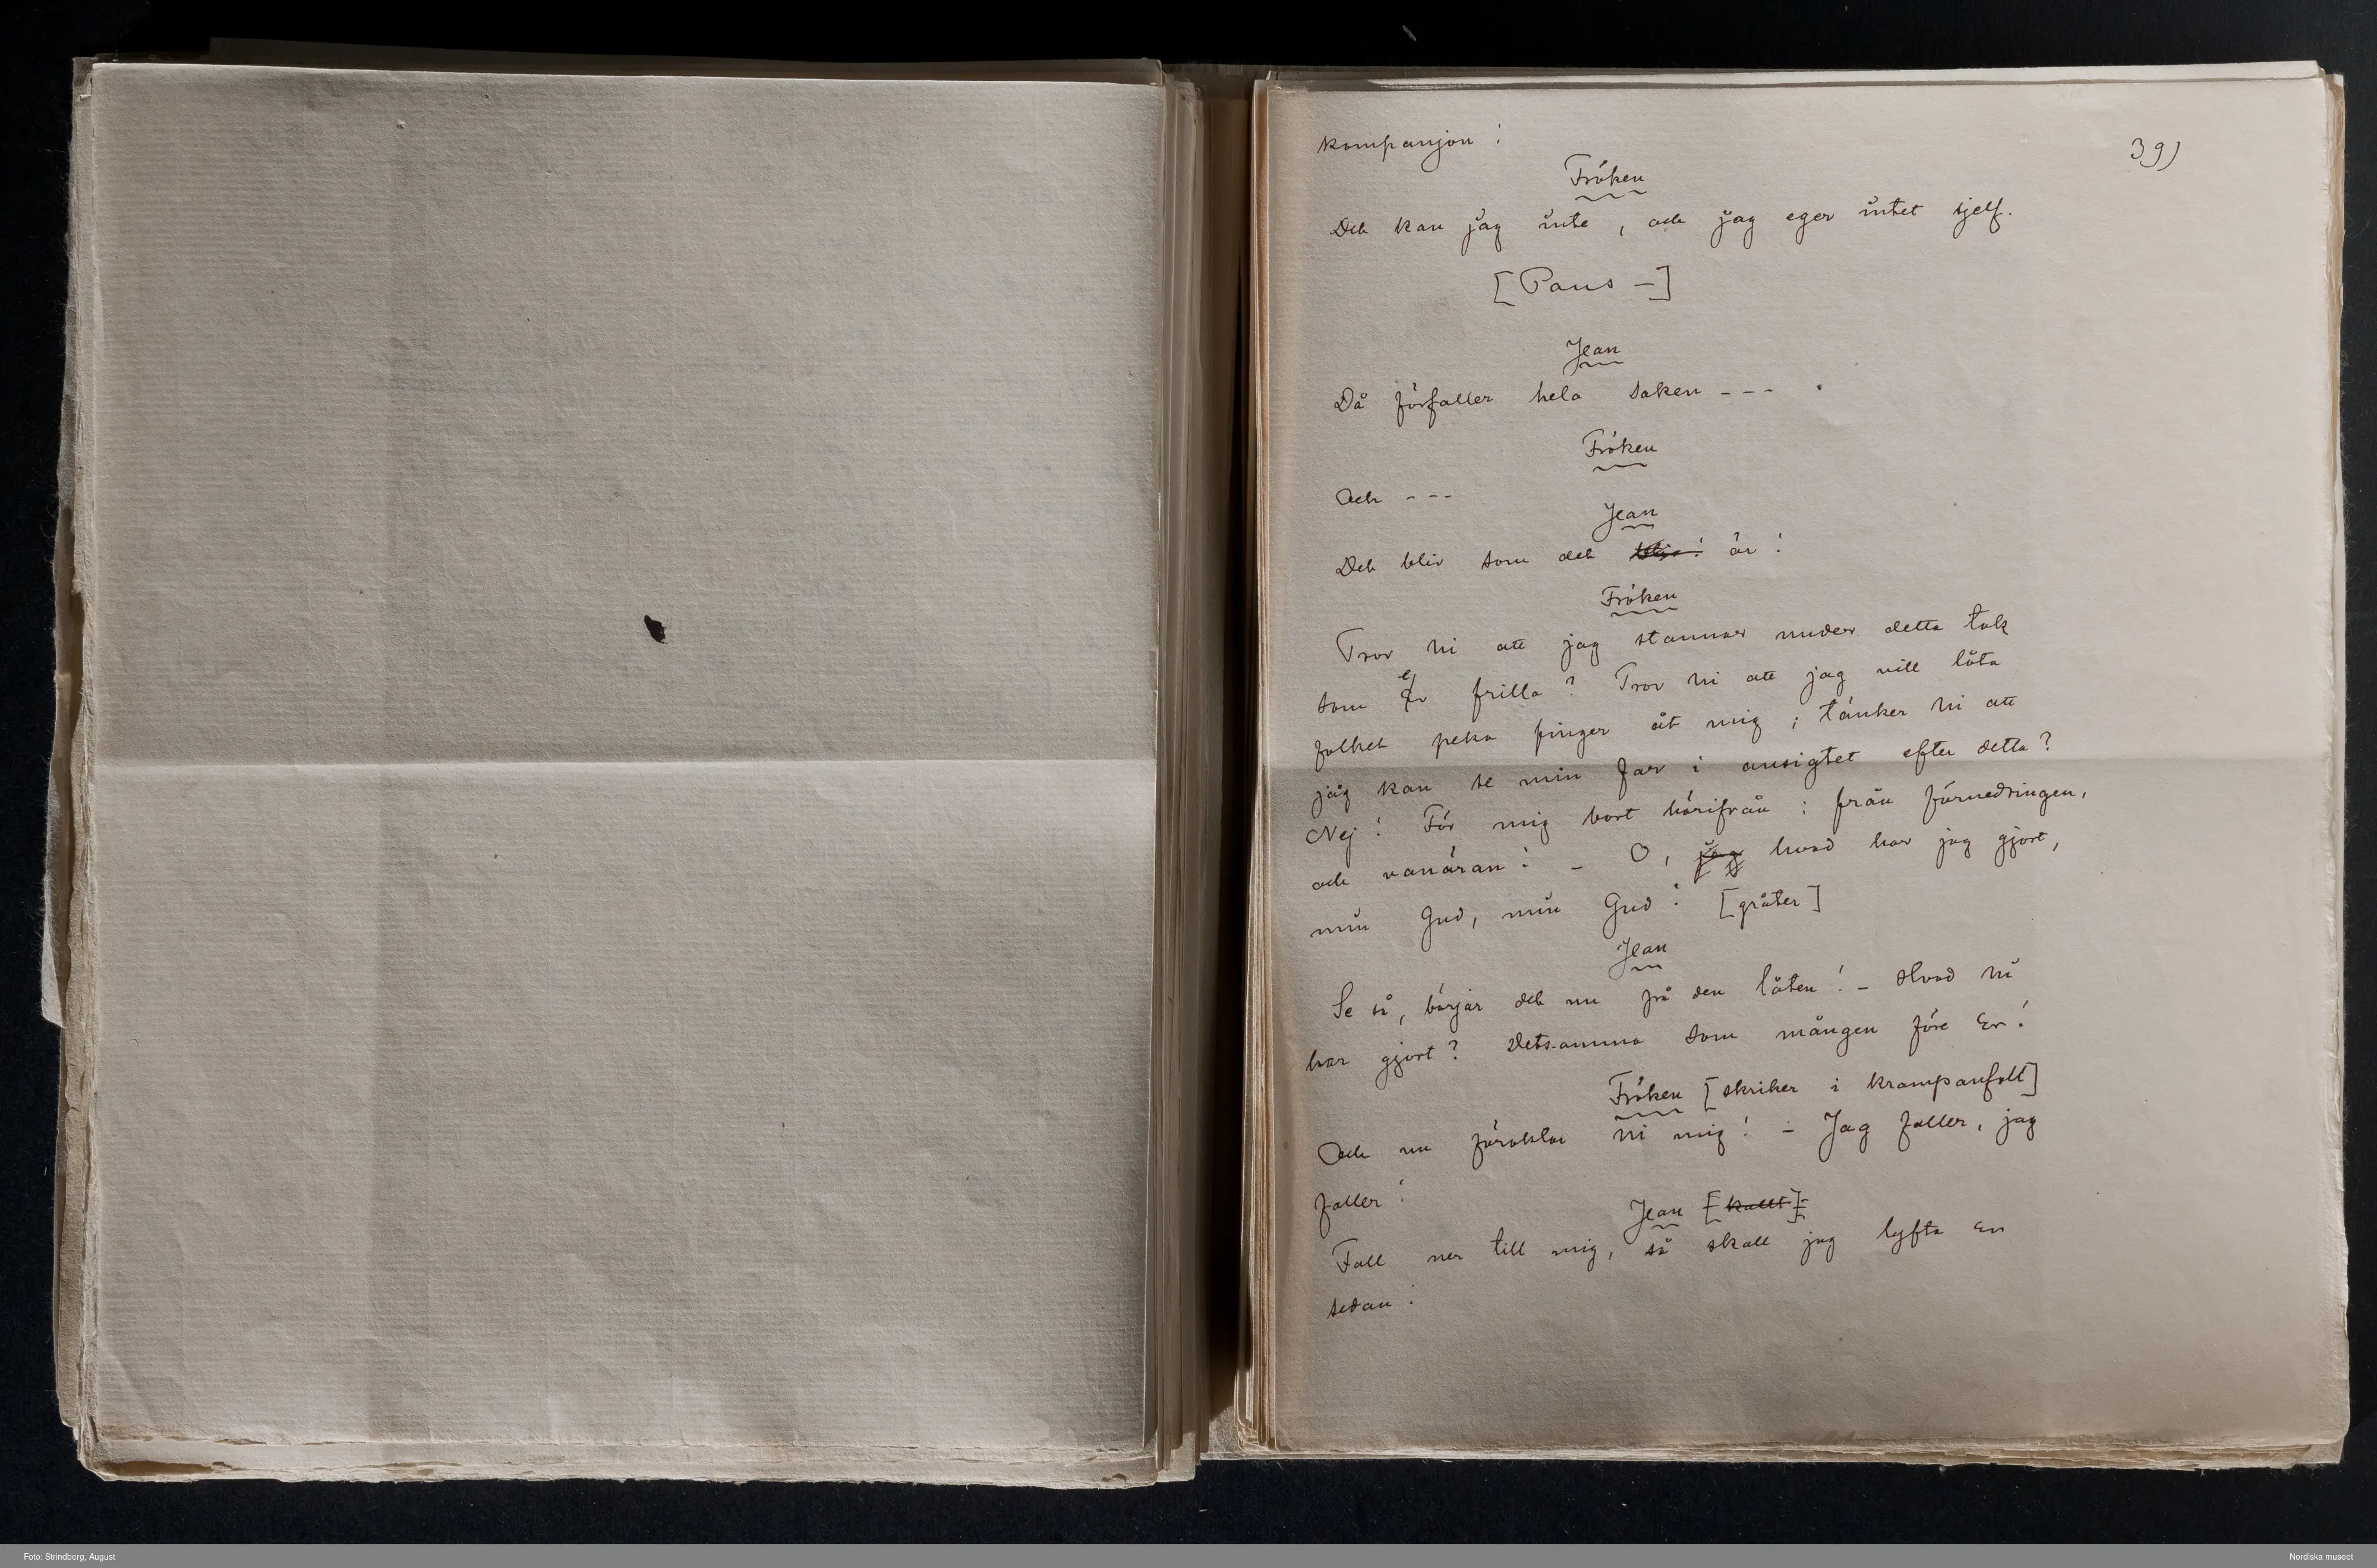 kompanjon!
39)
Fröken
Det kan jag inte, och jag eger intet sjelf.
[Paus –]
Jean
Då förfaller hela saken ---
Fröken
Och ---
Jean
Det bliv som det är!
Fröken
Tror ni att jag stannar under detta tak
som er frilla? Tror ni att jag vill låta
folket peka finger åt mig; tänker ni att
jag kan se min far i ansigtet efter detta?
Nej! För mig bort härifrån; från förnedringen,
och vanäran! – O, jag hvad har jag gjort,
min Gud, min Gud! [gråter]
Jean
Se så, börjar det nu på den låten! – Hvad ni
har gjort? Detsamma som mången före Er!
Fröken [skriker i krampanfall]
Och nu föraktar ni mig! – Jag faller, jag
faller!
Jean [kallt]
Fall ner till mig, så skall jag lyfta Er
sedan!
Foto: Strindberg, August
Nordiska museet